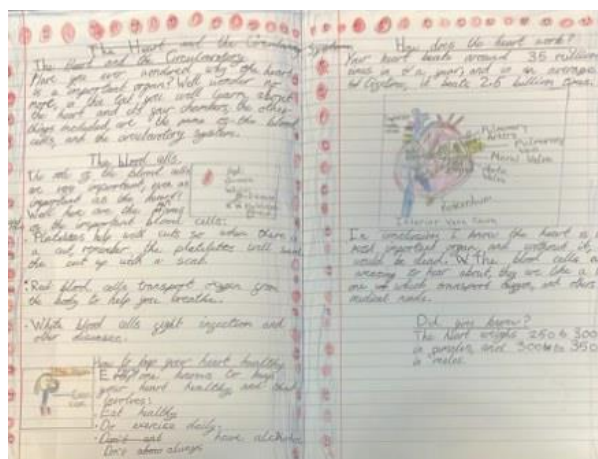 The Heart and the Circulatory System
The Heart and the Circulatory
Have you ever wondered why the heart
is a important organ? Well wonder no
more, in this text you will learn about
the heart and it's four chambers, the other
things included are the names of the blood
cells, and the circulatory system.
The blood cells.
The role of the blood cells
are very important, even as
important as the heart!
Well here are the
of the important blood cells:
• Platelets help with cuts so when there is
a cut remember the platelets will
the cut up with a scab.
• Red blood cells transport oxygen
the body to help you breathe.
• White blood cells fight infection and
other diseases.
How to keep your heart healthy
Everyone to keep
your heart healthy and that
involves:
• Eat healthy
• Do exercise daily.
• Don't have alcohol
Don't
How does the heart work?
Your heart beats around 35 million
times in a year, and in an average
lifetime, it beats 2.5 billion times.
Pulmonary
Artery
Pulmonary
Vein
Mitral Valve
Aortic
Valve
Inferior Vena Cava
In conclusion I know the heart is a
most important organ, and without it,
would be dead. The blood cells
amazing to hear about, they are like a
one which transport oxygen, and others
medical needs.
Did you know?
The heart weighs 250 to 300
in females, and 300 to 350
in males.